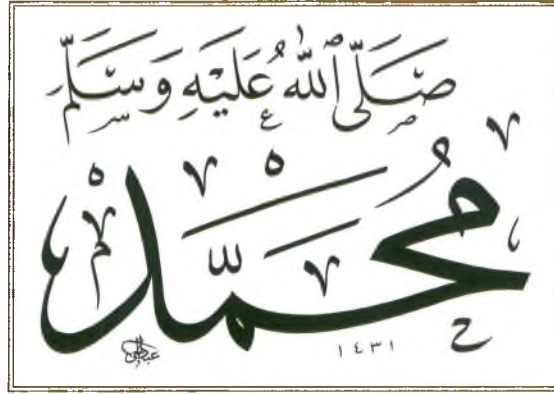 صَلَّى اللّٰهُ عَلَيْهِ وَسَلَّمَ
مُحَمَّدٌ
١٤٣١